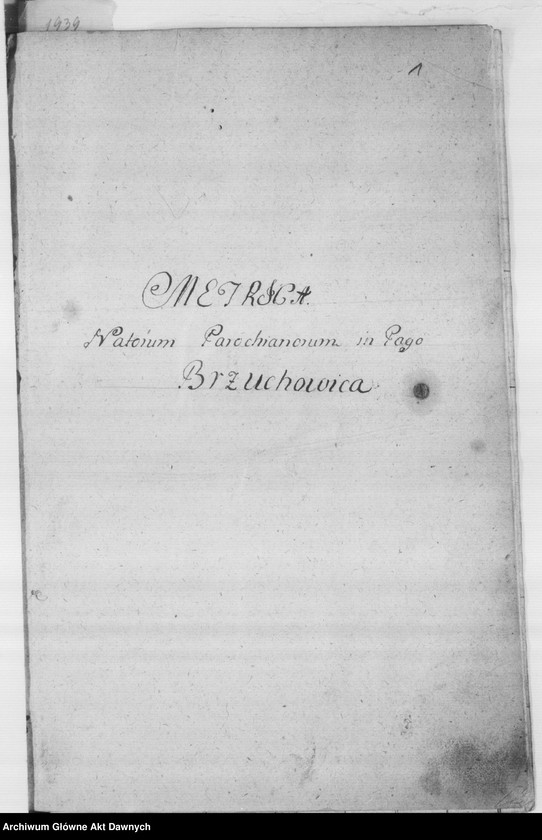 1939
1
METRICA.
Natorum Parochianorum in Pago
Brzuchowica
Archiwum Główne Akt Dawnych